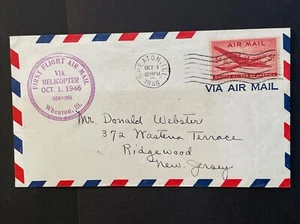 FIRST FLIGHT AIR MAIL
VIA
HELICOPTER
OCT. 1, 1946
SERVING
Wheaton, Ill.
WHEATON, ILL.
OCT 1
1946
AIR MAIL
UNITED STATES OF AMERICA
VIA AIR MAIL
Mr. Donald Webster
372 Wastena Terrace
Ridgewood
New Jersey